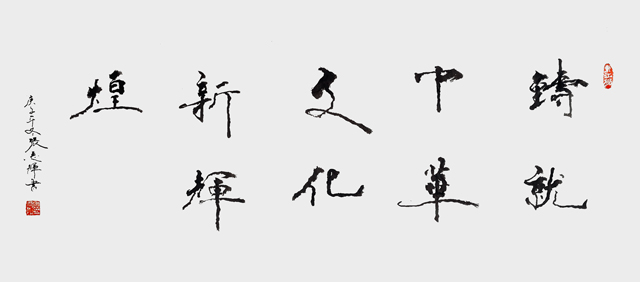 鑄就
中華
文化
新輝
煌
庚子年冬